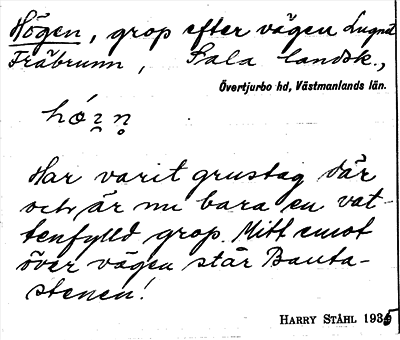 Högen, grop efter vägen Lugnet
Träbrunn, Sala landsk.,
Övertjurbo hd, Västmanlands län.
Har varit grustag där
och är nu bara en vat-
tenfylld grop. Mitt emot
över vägen står Bauta-
stenen!
HARRY STÅHL 1935